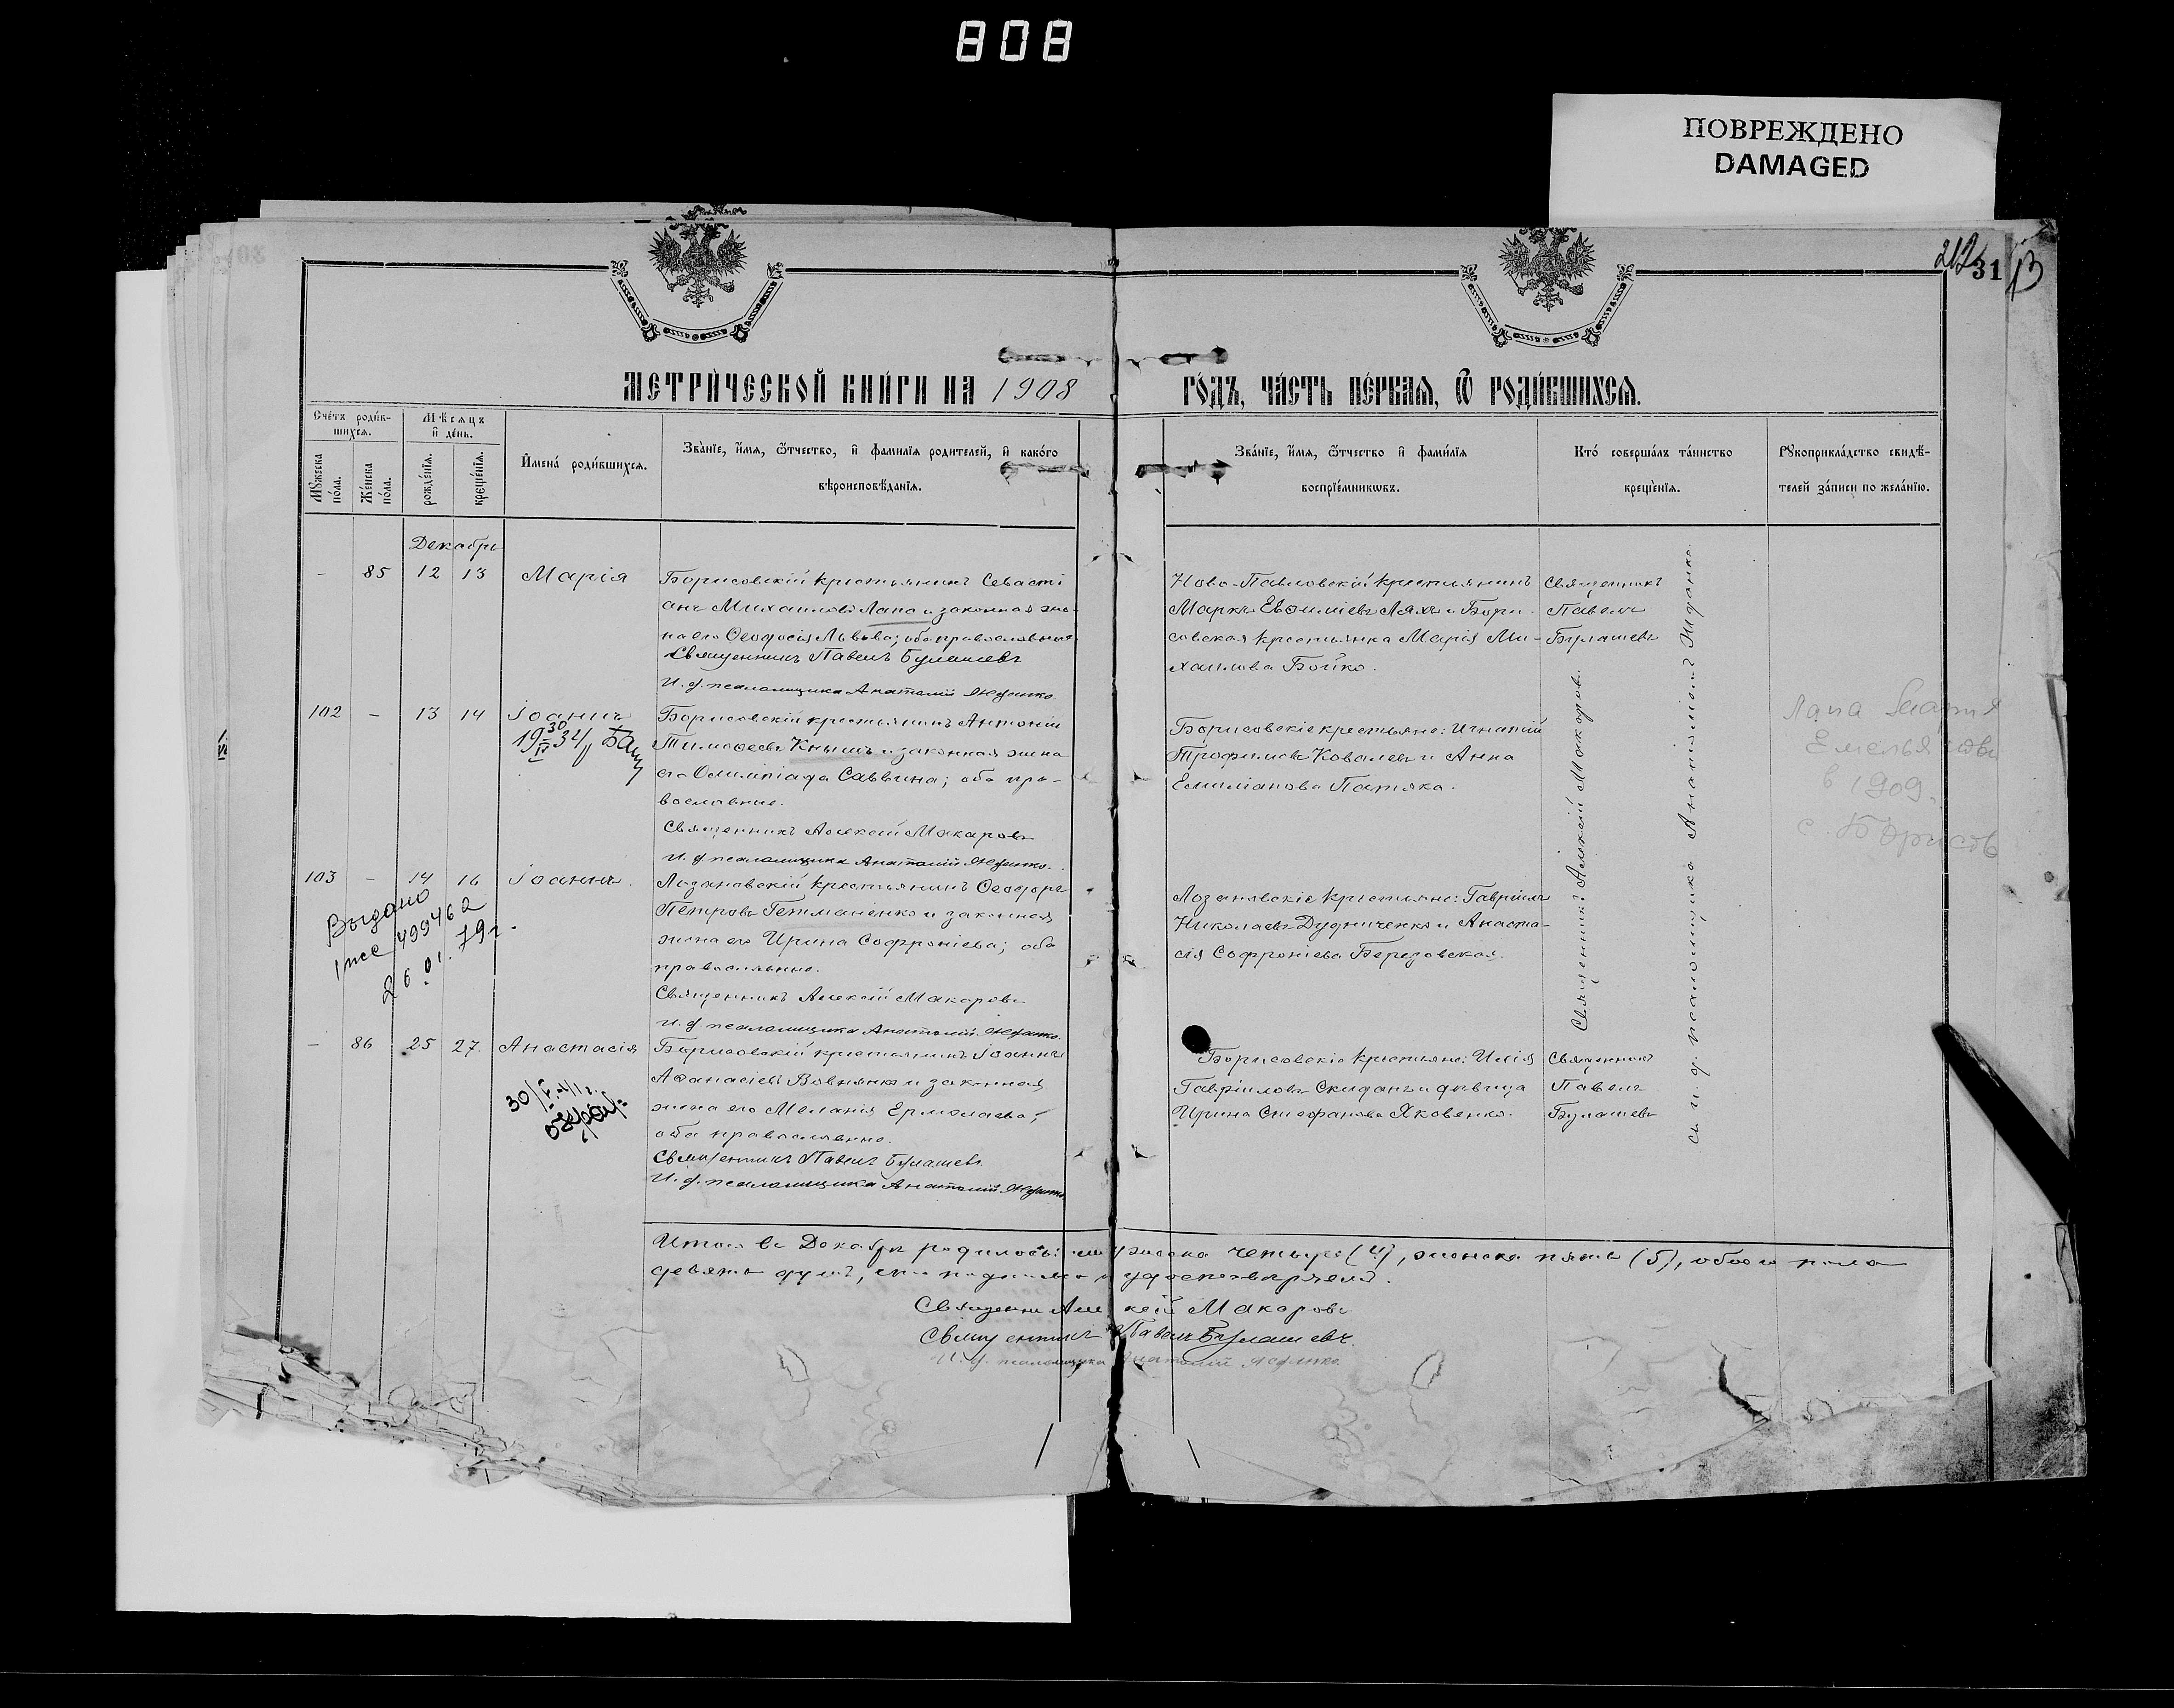 808
ПОВРЕЖДЕНО
DAMAGED
212
31
МЕТРИ́ЧЕСКОЙ КНИ́ГИ НА 1908
ГО́ДЪ, ЧА́СТЬ ПЕ́РВАЯ, Ѿ РОДИ́ВШИХСЯ.
Сче́тъ роди́в-
шихся.
Мѣ́сяцъ
и҆ де́нь.
Му́жеска
по́ла.
Же́нска
по́ла.
рожде́нїя.
креще́нїя.
И҆мена́ роди́вшихся.
Зва́нїе, и҆́мя, ѻ҆́тчество, и҆ фами́лїя роди́телей, и҆ како́го
вѣроисповѣ́данїя.
Зва́нїе, и҆́мя, ѻ҆́тчество и҆ фами́лїя
воспрїе́мникѡвъ.
Кто́ соверша́лъ та́инство
креще́нїя.
Рꙋкоприкла́дство свидѣ́-
телей за́писи по жела́нїю.
Декабрь
- 85 12 13 Марія
Борисовскій крестьянинъ Севасті
анъ Михаиловъ Лапа и законная же-
на его Ѳеодосія Львова; оба православные.
Священникъ Павелъ Булашевъ
И. д. псаломщика Анатолій Жданко.
Ново-Павловскій крестьянинъ
Маркъ Евѳиміевъ Ляхъ и Бори-
совская крестьянка Марія Ми-
хаилова Бойко.
Священникъ
Павелъ
Булашевъ
102 - 13 14 Іоаннъ
Борисовскій крестьянинъ Антоній
Тимоѳеевъ Кнышъ и законная жена
его Олимпіада Саввина; оба пра-
вославные.
Священникъ Алексій Макаровъ
И. д. псаломщика Анатолій Жданко.
Борисовскіе крестьяне: Игнатій
Трофимовъ Ковалевъ и Анна
Емиліанова Патяка.
103 - 14 16 Іоаннъ.
Выдано
499462
26.01.79г.
Лозановскій крестьянинъ Ѳеодоръ
Петровъ Гетманенко и законная
жена его Ирина Софроніева; оба
православные.
Священникъ Алексій Макаровъ
И. д. псаломщика Анатолій Жданко.
Лозановскіе крестьяне: Гавріилъ
Николаевъ Дудниченко и Анаста-
сія Софроніева Березовская.
- 86 25 27. Анастасія
Борисовскій крестьянинъ Іоаннъ
Аѳанасіевъ Вовнянко и законная
жена его Меланія Ермолаева;
оба православные.
Священникъ Павелъ Булашевъ.
И. д. псаломщика Анатолій Жданко
Борисовскіе крестьяне: Илія
Гавріиловъ Скиданъ и дѣвица
Ирина Стефанова Яковенко.
Священникъ
Павелъ
Булашевъ
Священникъ Алексій Макаровъ.
И. д. псаломщика Анатолій Жданко.
Лапа Мария
Емельяновн
в 1909.
с. Борисов
Итого въ Декабрѣ родилось: мужеска четыре (4), женска пять (5), обоего пола
девять душъ,
Священникъ Алексій Макаровъ
Священникъ Павелъ Булашевъ.
И. д. псаломщика Анатолій Жданко.